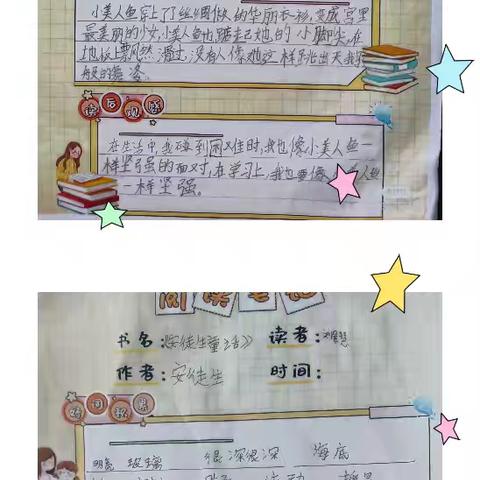 小美人鱼穿上了丝绸做的华丽衣衫,变成宫里
最美丽的少女,小美人鱼也踮起她的小脚尖,在
地板上飘然滑过,没有人像她这样跳出天鹅
般的舞姿。
读后观感
在生活中,我碰到困难时,我也像小美人鱼一
样坚强的面对,在学习上,我也要像小美人鱼
一样坚强。
阅读笔记
书名:《安徒生童话》 读者:
作者:安徒生 时间:
好词积累
玻璃 很深很深 海底